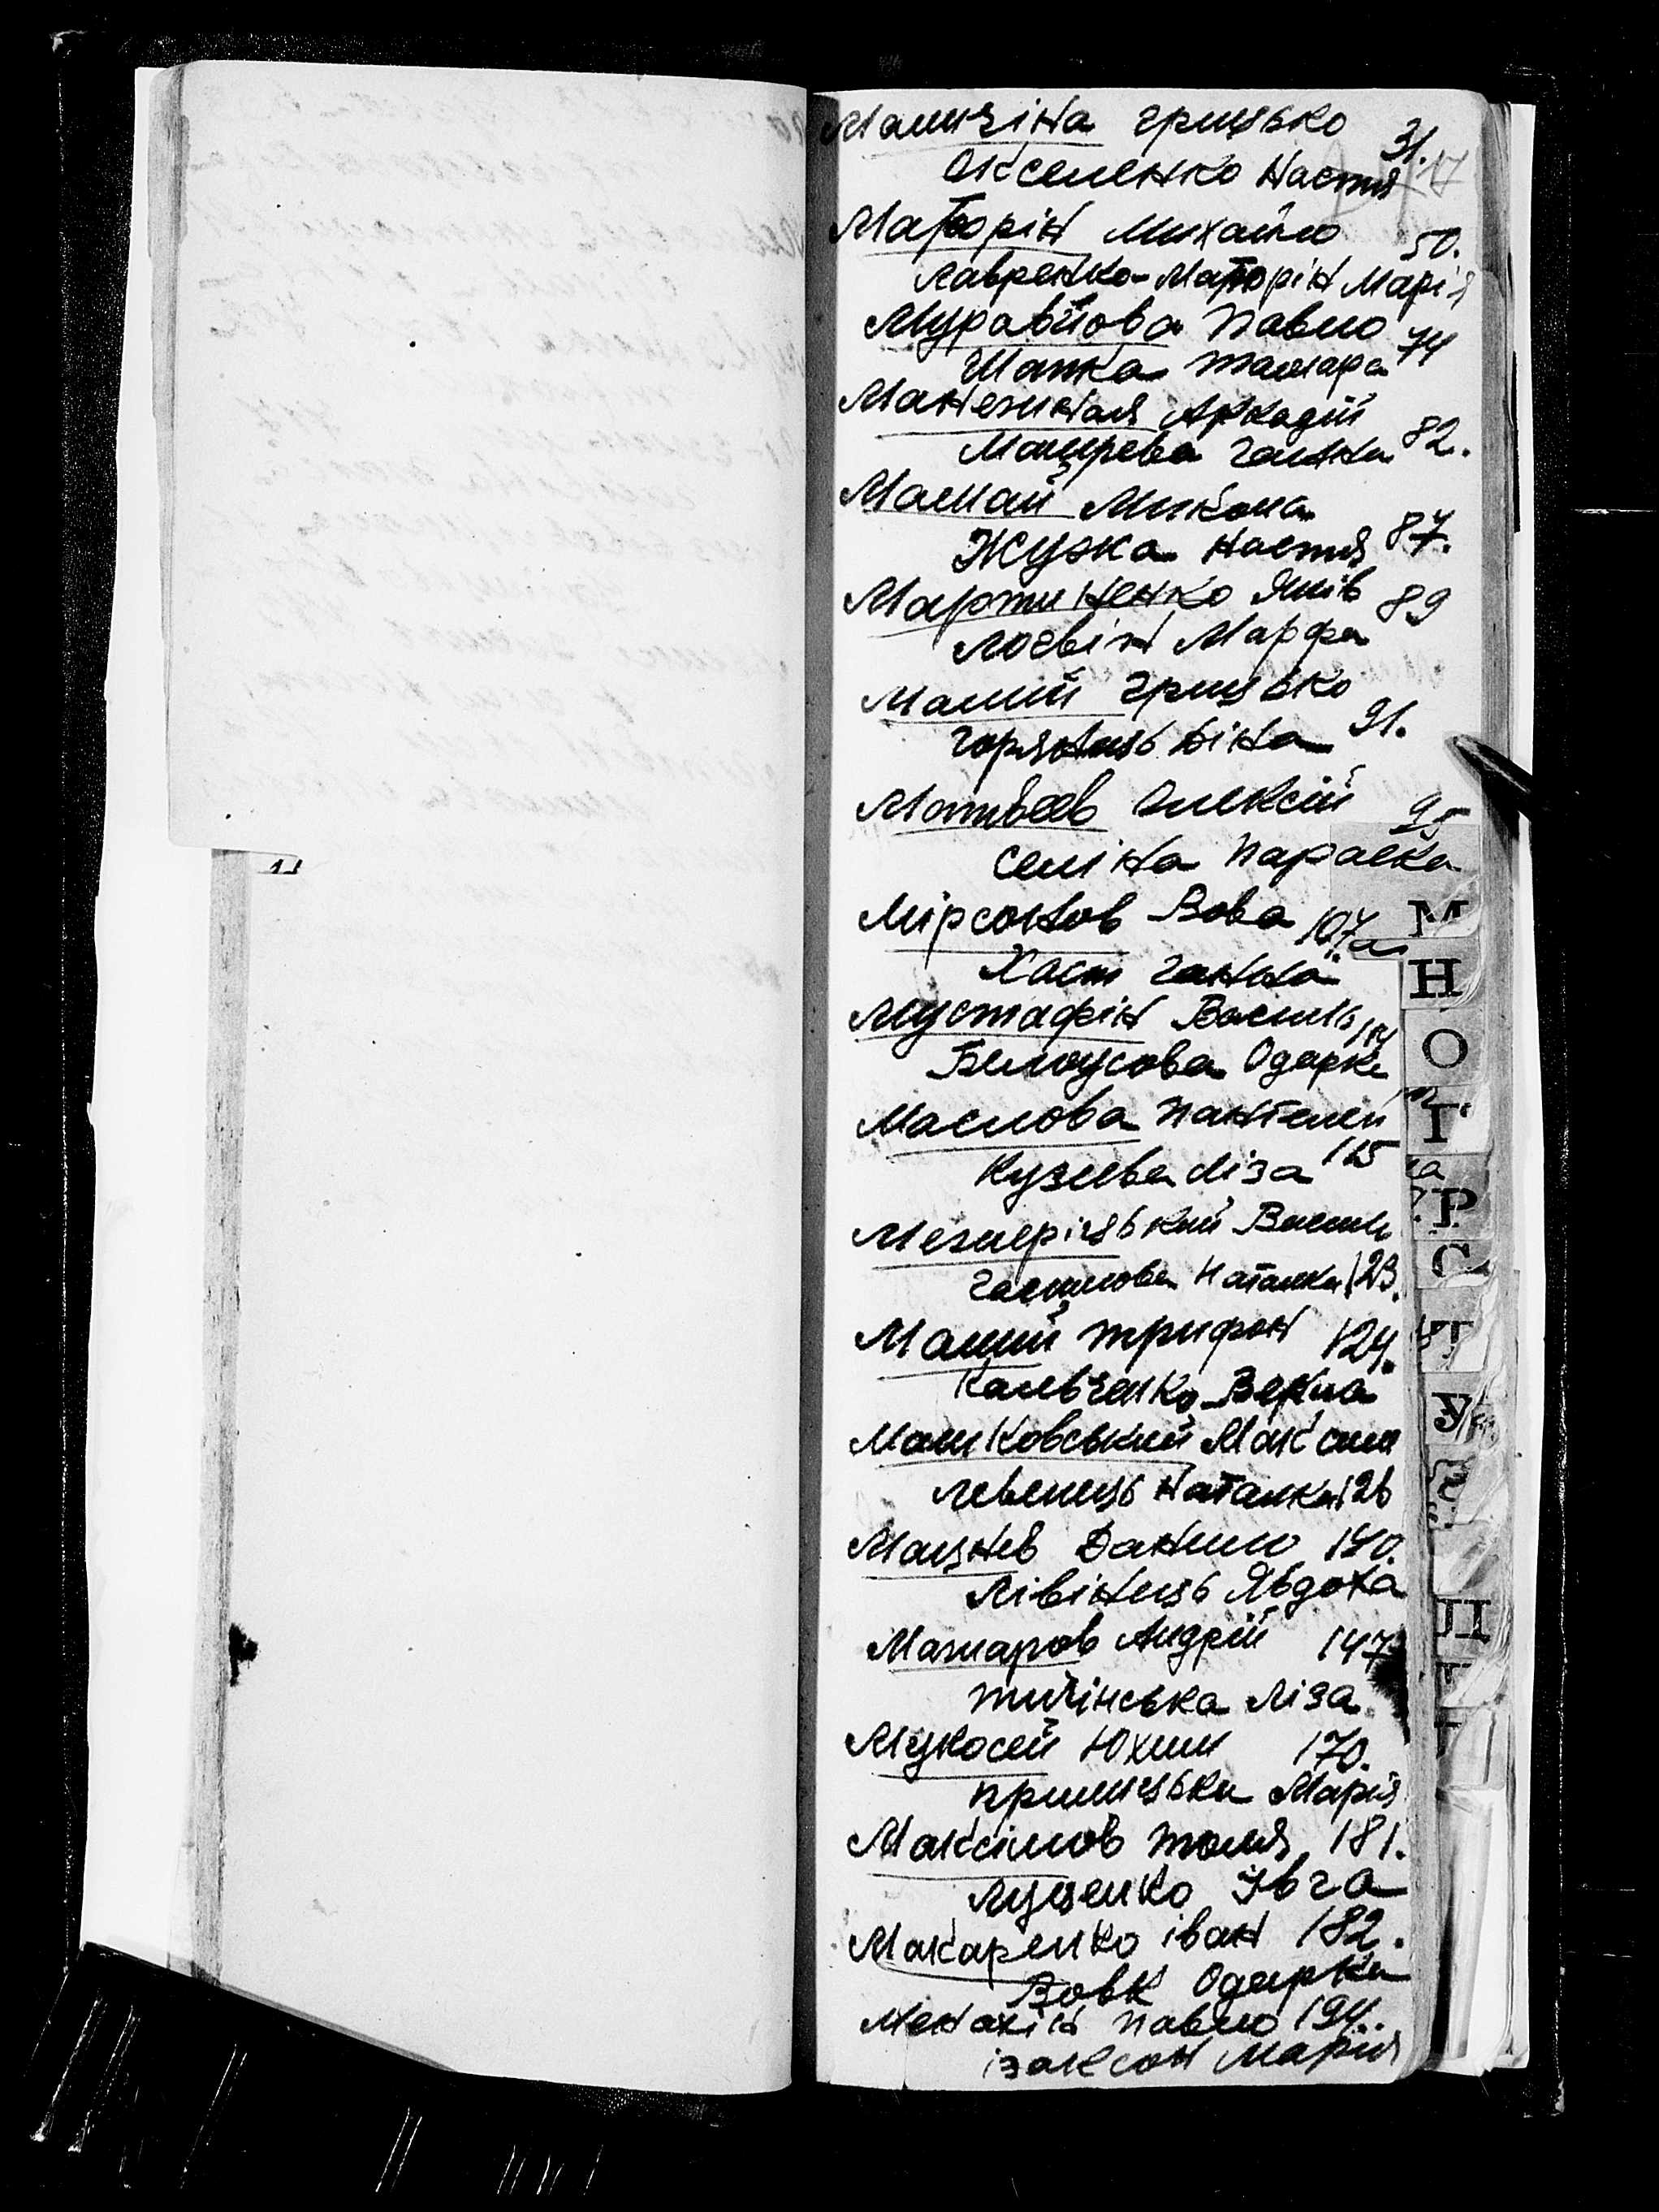 Мамчіна Грицько 31.
Аксененко Настя 17
Маторін Михайло 50.
Лавренко-Маторін Марія
Муравйова Павло 74
Шапка Тамара
Аркадій 82.
Ганна
Мамай Микола
Жузка Настя 87.
Мартиненко Яків 89
Логвін Марфа
Малий Грицько
Горянець Ніна 91.
Матвєєв Олексій 95
Семіна Параска
Мірсонов Вова 107а
Хаст Ганна
Мустафін Василь 114
Белоусова Одарка
Маслова Пантелей
Кузєєва Ліза 115
Межеріцький Василь
Наталка 123.
Малий Трифон 124.
Кальченко Векла
Машковський Максим
Левенець Наталка 126
Мацнєв Данило 140.
Лівінець Явдоха
Макаров Андрій 147
Тичінська Ліза
Мукосей Юхим 170.
Марія
Максімов Толя 181.
Луценко Ївга
Макаренко Іван 182.
Вовк Одарка
Менакін Павло 194.
Ізаксон Марія
М
Н
О
П
Р
С
Т
У